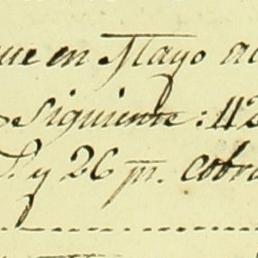 en Mayo
Siguiente: 42
y 26 m. cobra